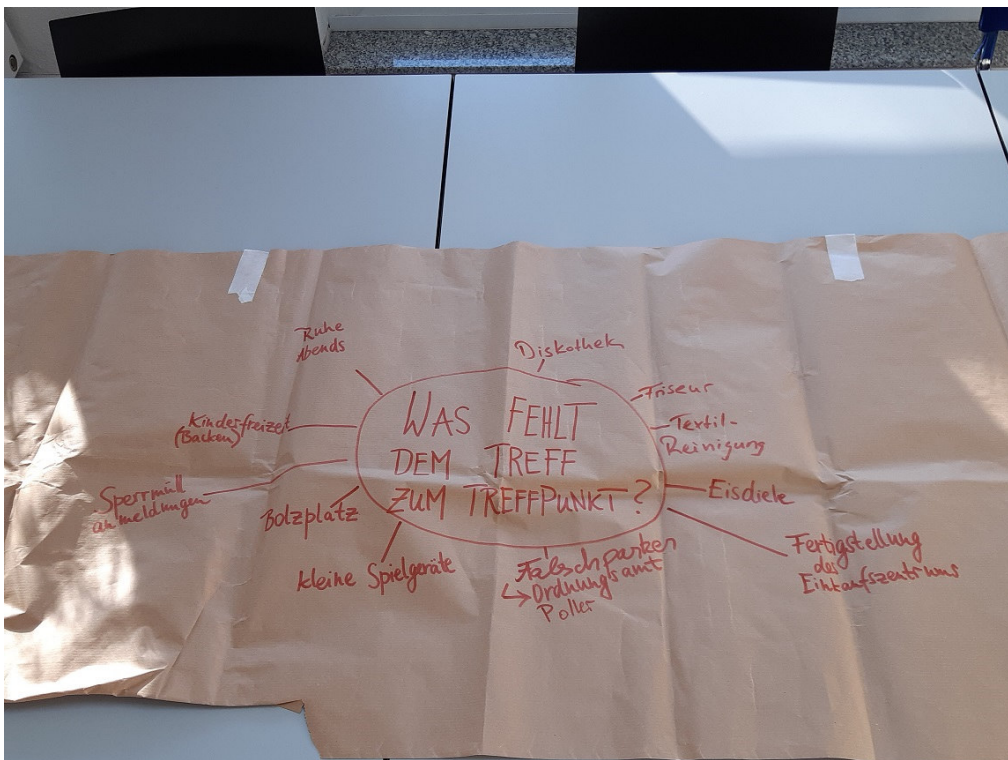 WAS FEHLT
DEM TREFF
ZUM TREFFPUNKT?
Diskothek
Friseur
Textil-
Reinigung
Eisdiele
Fertigstellung
des
Einkaufszentrums
Falschparker
↳ Ordnungsamt
Poller
kleine Spielgeräte
Bolzplatz
Sperrmüll
anmeldungen
Kinderfreizeit
(Backen)
Ruhe
Abends